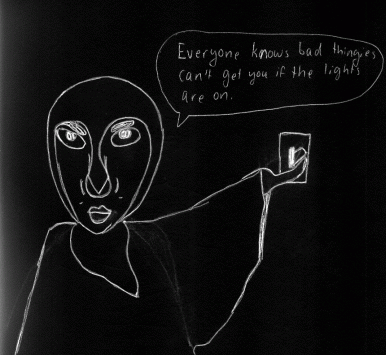 Everyone knows bad thingies
can't get you if the lights
are on.